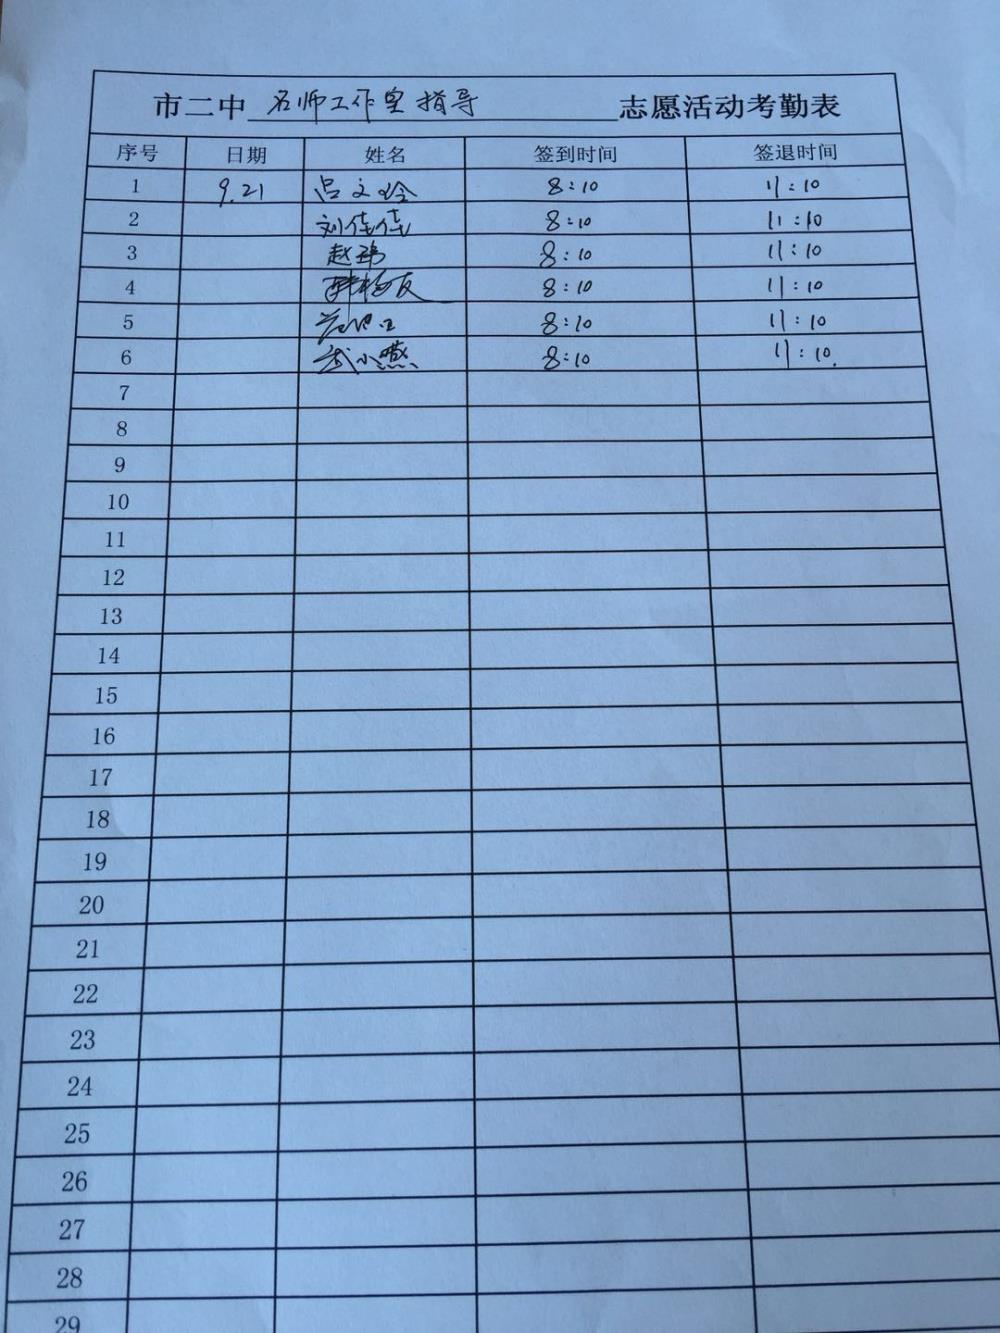 市二中 名师工作室指导 志愿活动考勤表
序号 日期 姓名 签到时间 签退时间
1 9.21 吕文玲 8:10 11:10
2 刘佳佳 8:10 11:10
3 赵 8:10 11:10
4 8:10 11:10
5 8:10 11:10
6 武小燕 8:10 11:10.
7
8
9
10
11
12
13
14
15
16
17
18
19
20
21
22
23
24
25
26
27
28
29